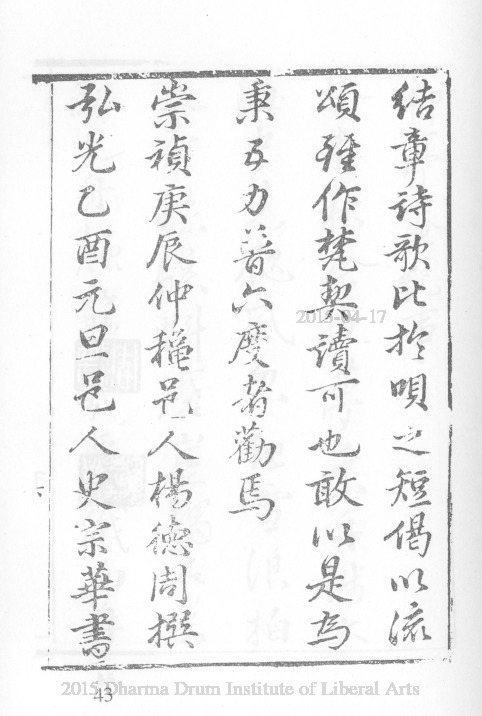 結章詩歌比於唄之短偈以流
頌雖作梵契讀可也敢以是為
秉五力普六度者勸焉
崇禎庚辰仲穐邑人楊德周撰
弘光乙酉元旦邑人史宗華書
2015-04-17
2015 Dharma Drum Institute of Liberal Arts
43